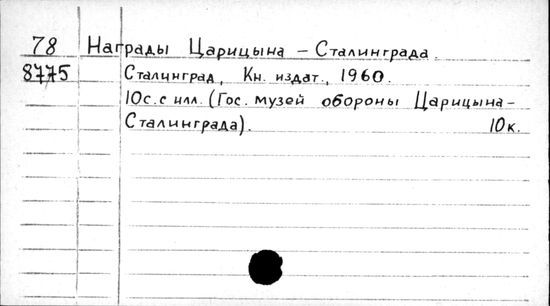 78 Награды Царицына – Сталинграда.
8775 Сталинград, Кн. издат., 1960.
10с. с илл. (Гос. музей обороны Царицына–
Сталинграда). 10к.